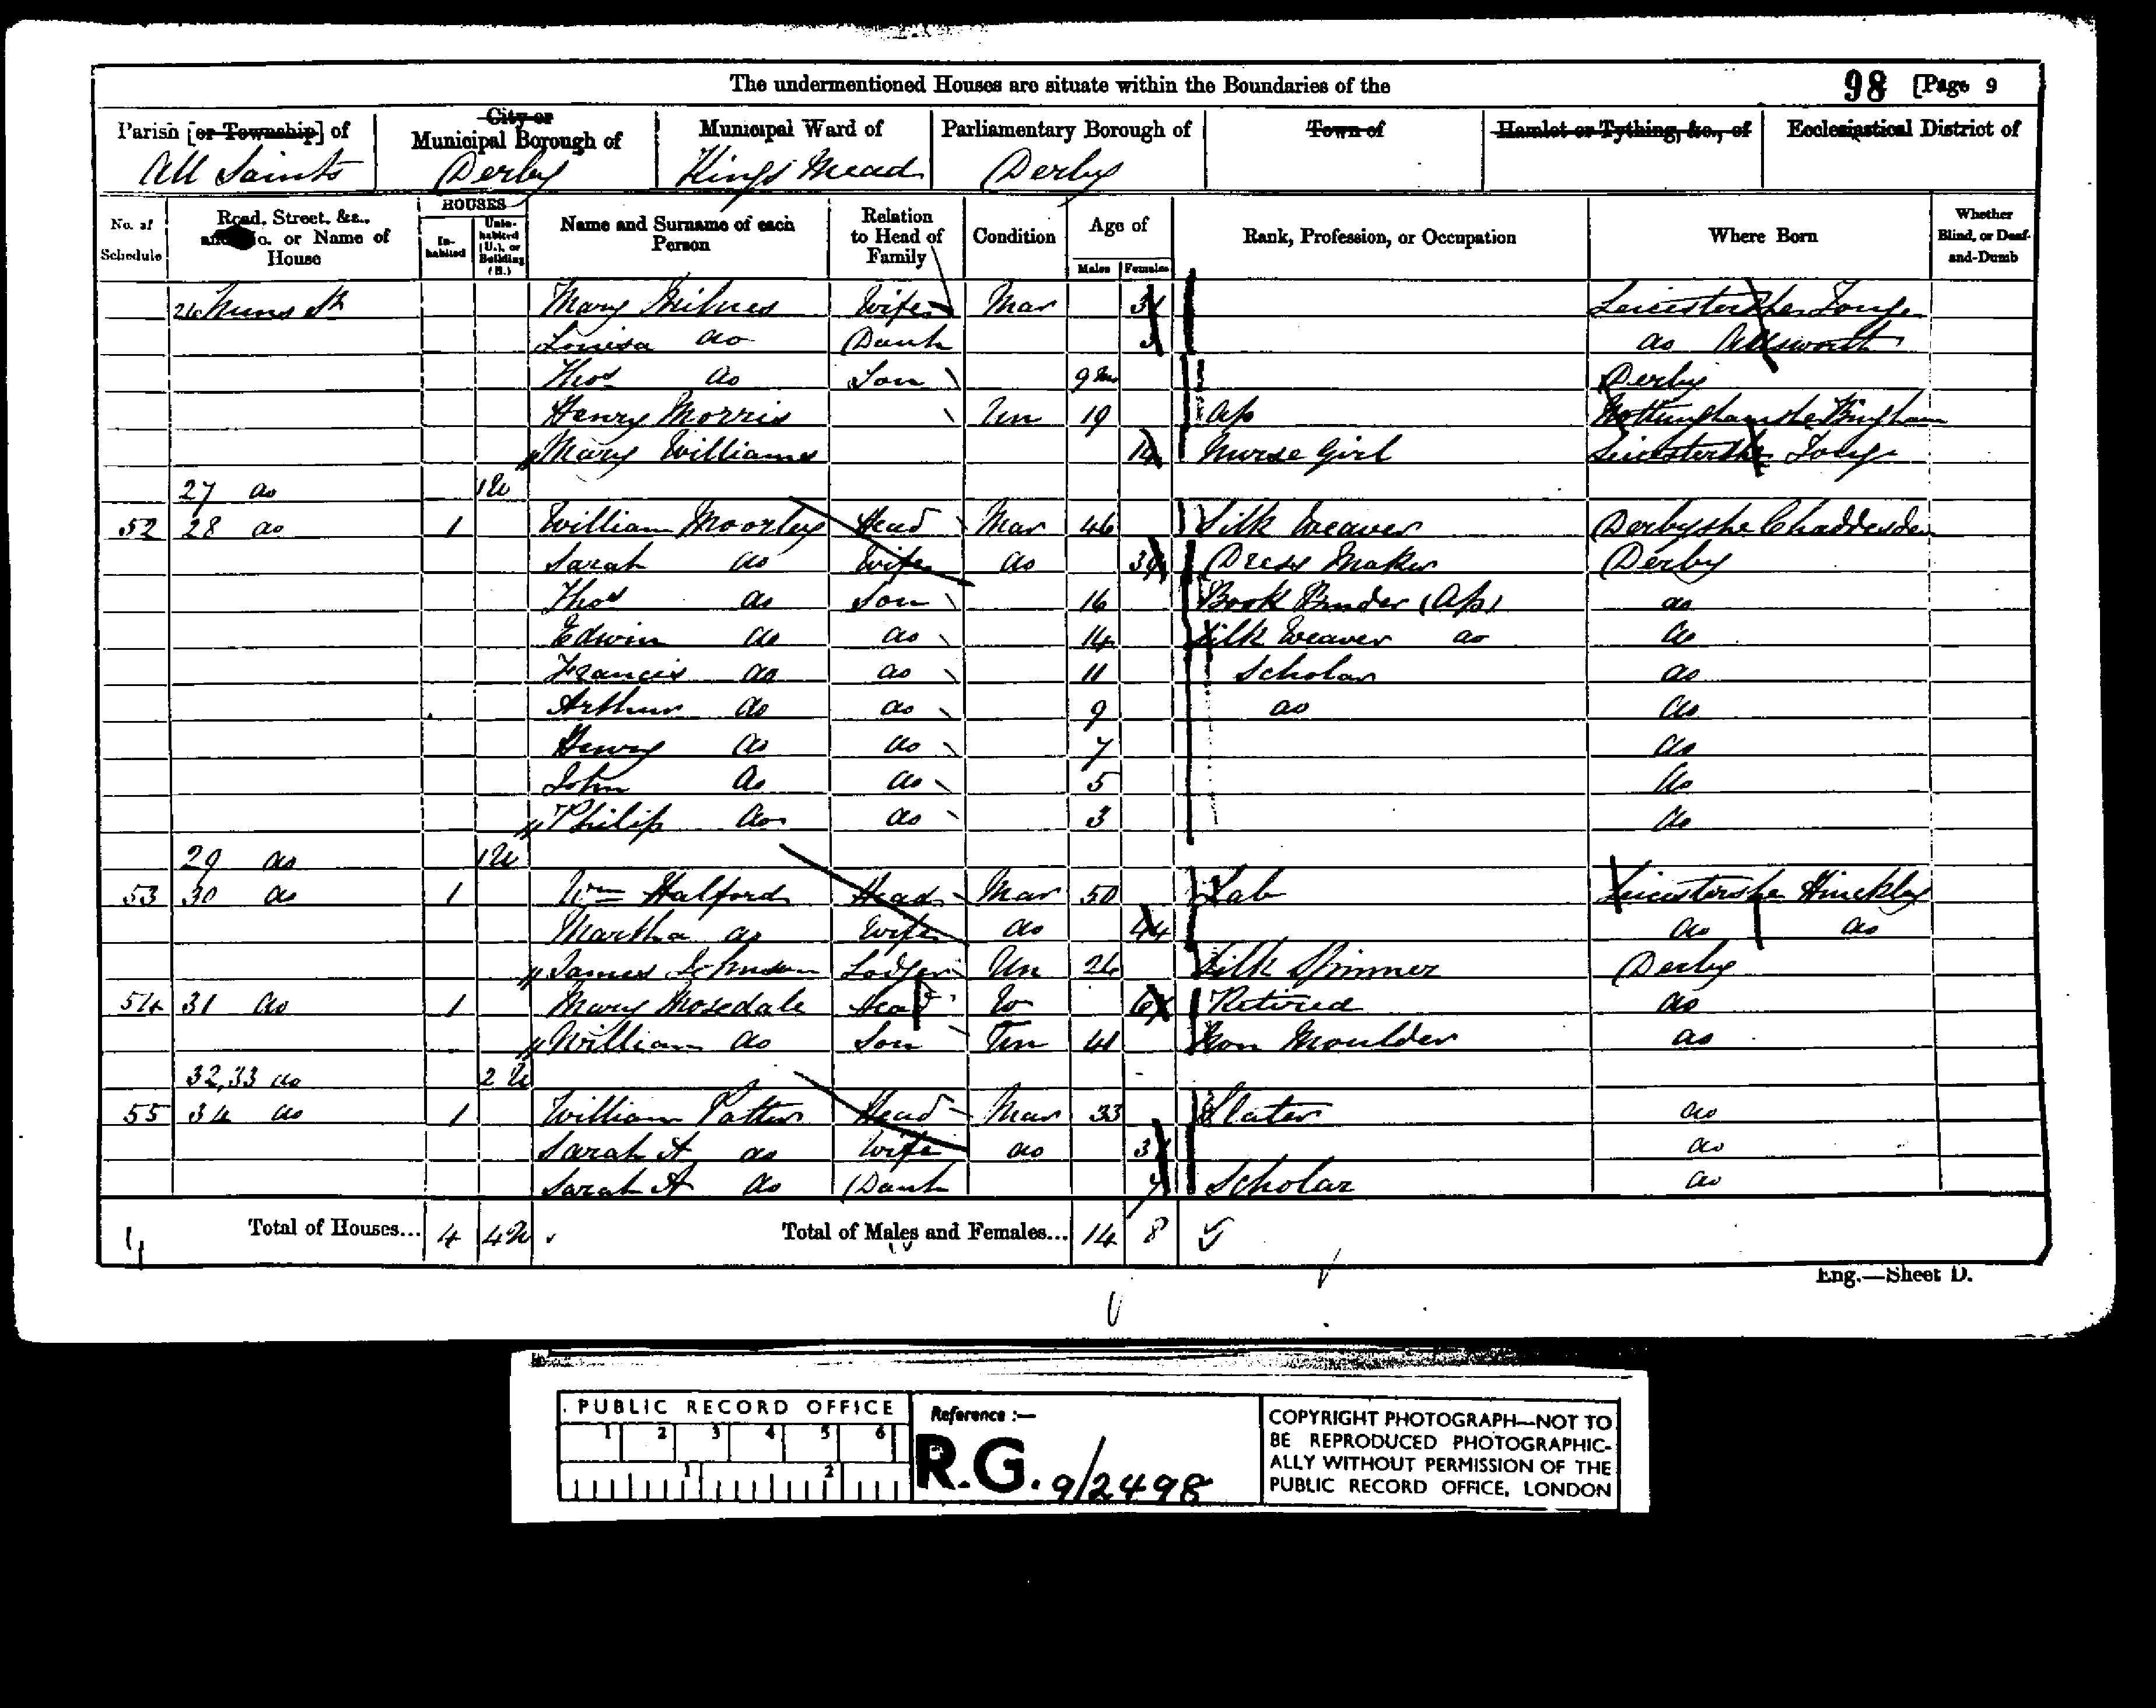 The undermentioned Houses are situate within the Boundaries of the 98 [Page 9
Parish [or Township] of City or Municipal Borough of Municipal Ward of Parliamentary Borough of Town of Hamlet or Tything, &c., of Ecclesiastical District of
All Saints Derby Kings Mead Derby
No. of Schedule Road, Street, &c., and No. or Name of House HOUSES Inhabited Uninhabited (U.), or Building (B.) Name and Surname of each Person Relation to Head of Family Condition Age of Males Females Rank, Profession, or Occupation Where Born Whether Blind, or Deaf-and-Dumb
26 Nuns St Mary Milnes Wife Mar 31
Louisa do Daur 3 do
Thos do Son 9m Derby
Henry Morris Un 19 Ap Nottinghamshe Bingham
Mary Williams 14 Nurse Girl
27 do 1U
52 28 do 1 William Moorley Head Mar 46 Silk Weaver Derbyshe Chaddesden
Sarah do Wife do 39 Dress Maker Derby
Thos do Son 16 Book Binder (Ap) do
Edwin do do 14 Silk Weaver do do
Francis do do 11 Scholar do
Arthur do do 9 do do
Henry do do 7 do
John do do 5 do
Philip do do 3 do
29 do 1U
53 30 do 1 Wm Halford Head Mar 50 Lab Leicestershe Hinckley
Martha do Wife do 44 do do
James Johnson Lodger Un 26 Silk Spinner Derby
54 31 do 1 Mary Mosedale Head W Retired do
William do Son Un 41 Iron Moulder do
32, 33 do 2U
55 34 do 1 William Potter Head Mar 33 Slater do
Sarah A do Wife do 31 do
Sarah A do Daur 7 Scholar do
Total of Houses... 4 4U Total of Males and Females... 14 8
Eng.—Sheet D.
PUBLIC RECORD OFFICE
1 2 3 4 5 6
1 2
Reference :—
R.G. 9/2498
COPYRIGHT PHOTOGRAPH—NOT TO
BE REPRODUCED PHOTOGRAPHIC-
ALLY WITHOUT PERMISSION OF THE
PUBLIC RECORD OFFICE, LONDON